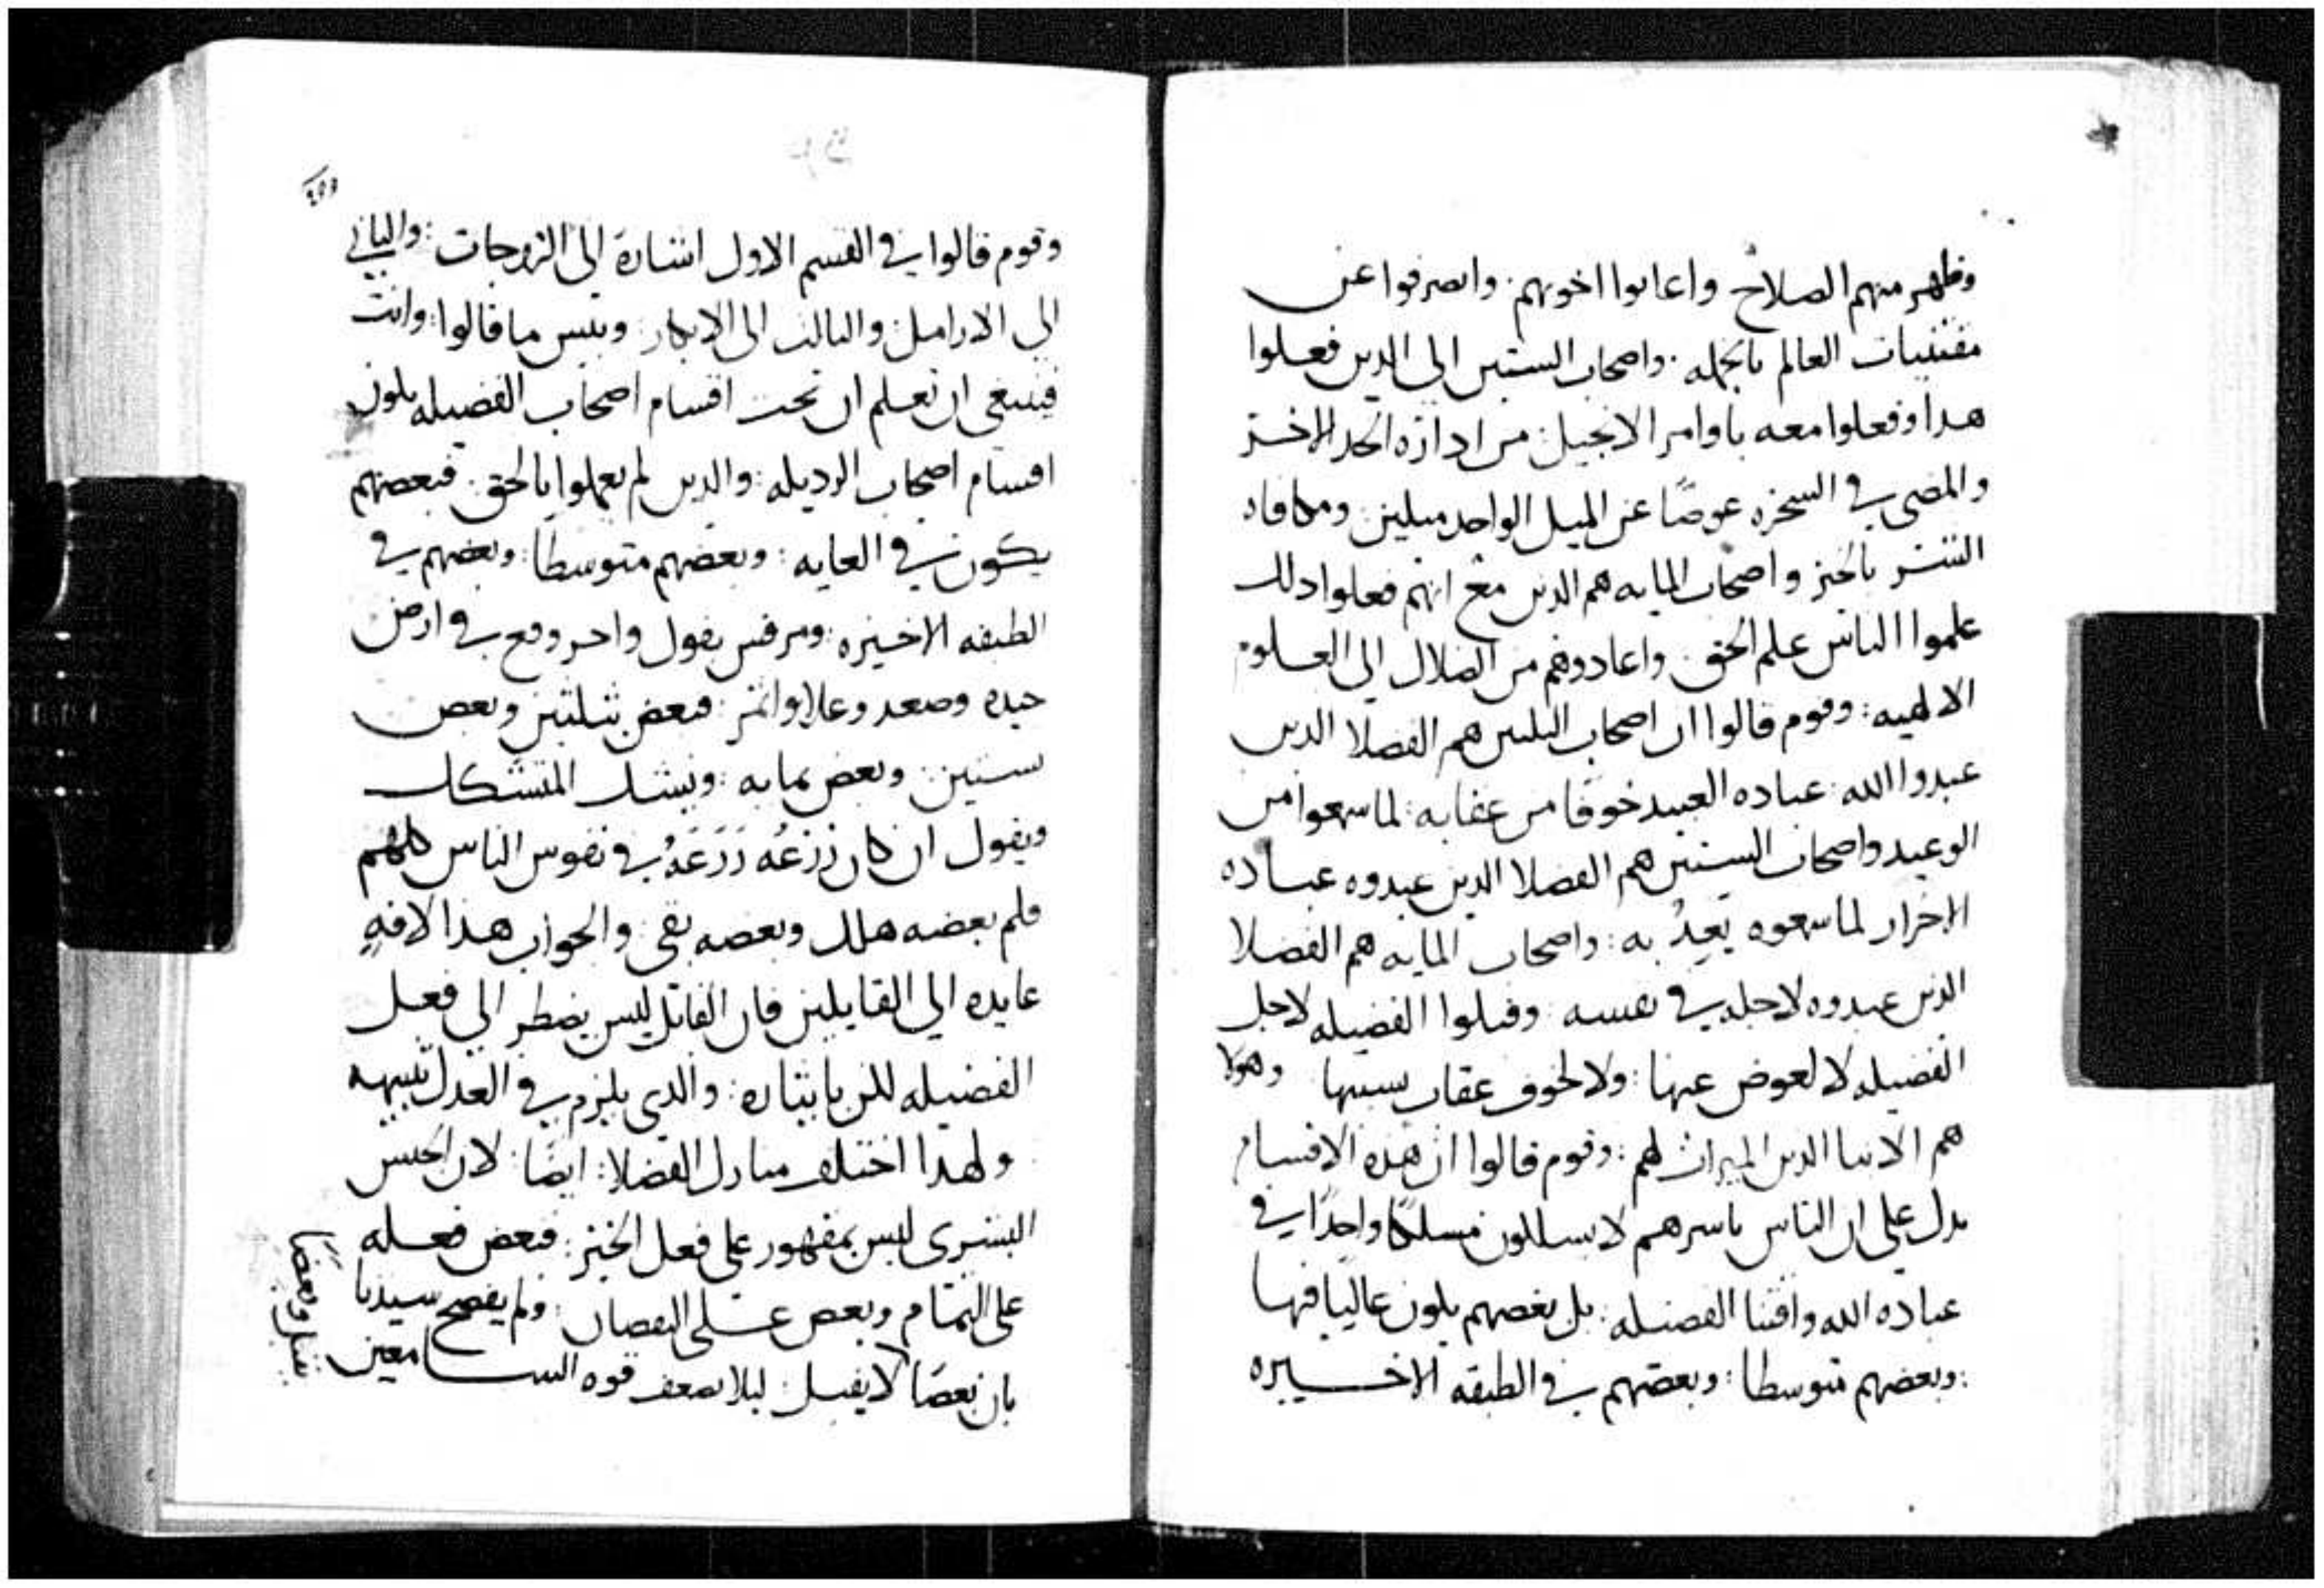 وظهر منهم الصلاح واعانوا اخوتهم. وانصرفوا عن
مقتنيات العالم بالجمله. واصحاب الستين الى الدين فعلوا
هدا وفعلوا معه باوامر الانجيل: من ادارة الخد الاخر
والمضى في السخره عوضًا عن الميل الواحد ميلين ومكافاه
الشر بالخير واصحاب المايه هم الدين مع انهم فعلوا دلك
علموا الناس علم الحق. واعادوهم من الضلال الى العلوم
الالهيه: وقوم قالوا ان اصحاب الثلثين هم الفضلا الدين
عبدوا الله عباده العبيد خوفا من عقابه: لما سمعوا من
الوعيد واصحاب الستين هم الفضلا الدين عبدوه عباده
الاحرار لما سمعوه يَعِدُ به: واصحاب المايه هم الفضلا
الدين عبدوه لاجله في نفسه: وقبلوا الفضيله لاجل
الفضيله لا لعوض عنها: ولا لخوف عقاب بسببها وهولا
هم الابنا الدين الميراث لهم: وقوم قالوا ان هده الاقسام
تدل على ان الناس باسرهم لا يسلكون مسلكًا واحدًا في
عباده الله واقتنا الفضيله: بل بعضهم يكون عاليًا فيها
: وبعضهم متوسطا: وبعضهم في الطبقه الاخيره
وقوم قالوا في القسم الاول اشارة الى الزوجات: والثاني
الى الارامل: والثالث الى الابكار: وبئس ما قالوا: وانت
فينبغى ان تعلم ان تحت اقسام اصحاب الفضيله يكون
اقسام اصحاب الرديله: والدين لم يعملوا بالحق. فبعضهم
يكون في الغايه: وبعضهم متوسطا: وبعضهم في
الطبقه الاخيره: ومرقس يقول واحر وقع في ارض
جيده وصعد وعلا واثمر: فبعض بثلثين وبعض
ستين: وبعض بمايه: ويشك المتشكك
ويقول ان كان زَرْعُه زَرَعَهُ في نفوس الناس كلهم
فلم بعضه هلك وبعضه بقى: والجواب هدا الافه
عايده الى القابلين فان القابل ليس يضطر الى فعل
الفضيله لكن بايثاره: والدى يلزم في العدل تنبيهه
ولهدا اختلف منازل الفضلا: ايضًا: لان الجنس
البشرى ليس بمقهور على فعل الخير: فبعض فعله
على التمام وبعض على النقصان: ولم يفصح سيدنا
بان بعضًا لا يقبل: ليلا يضعف قوه السامعين
يقبل وبعضا